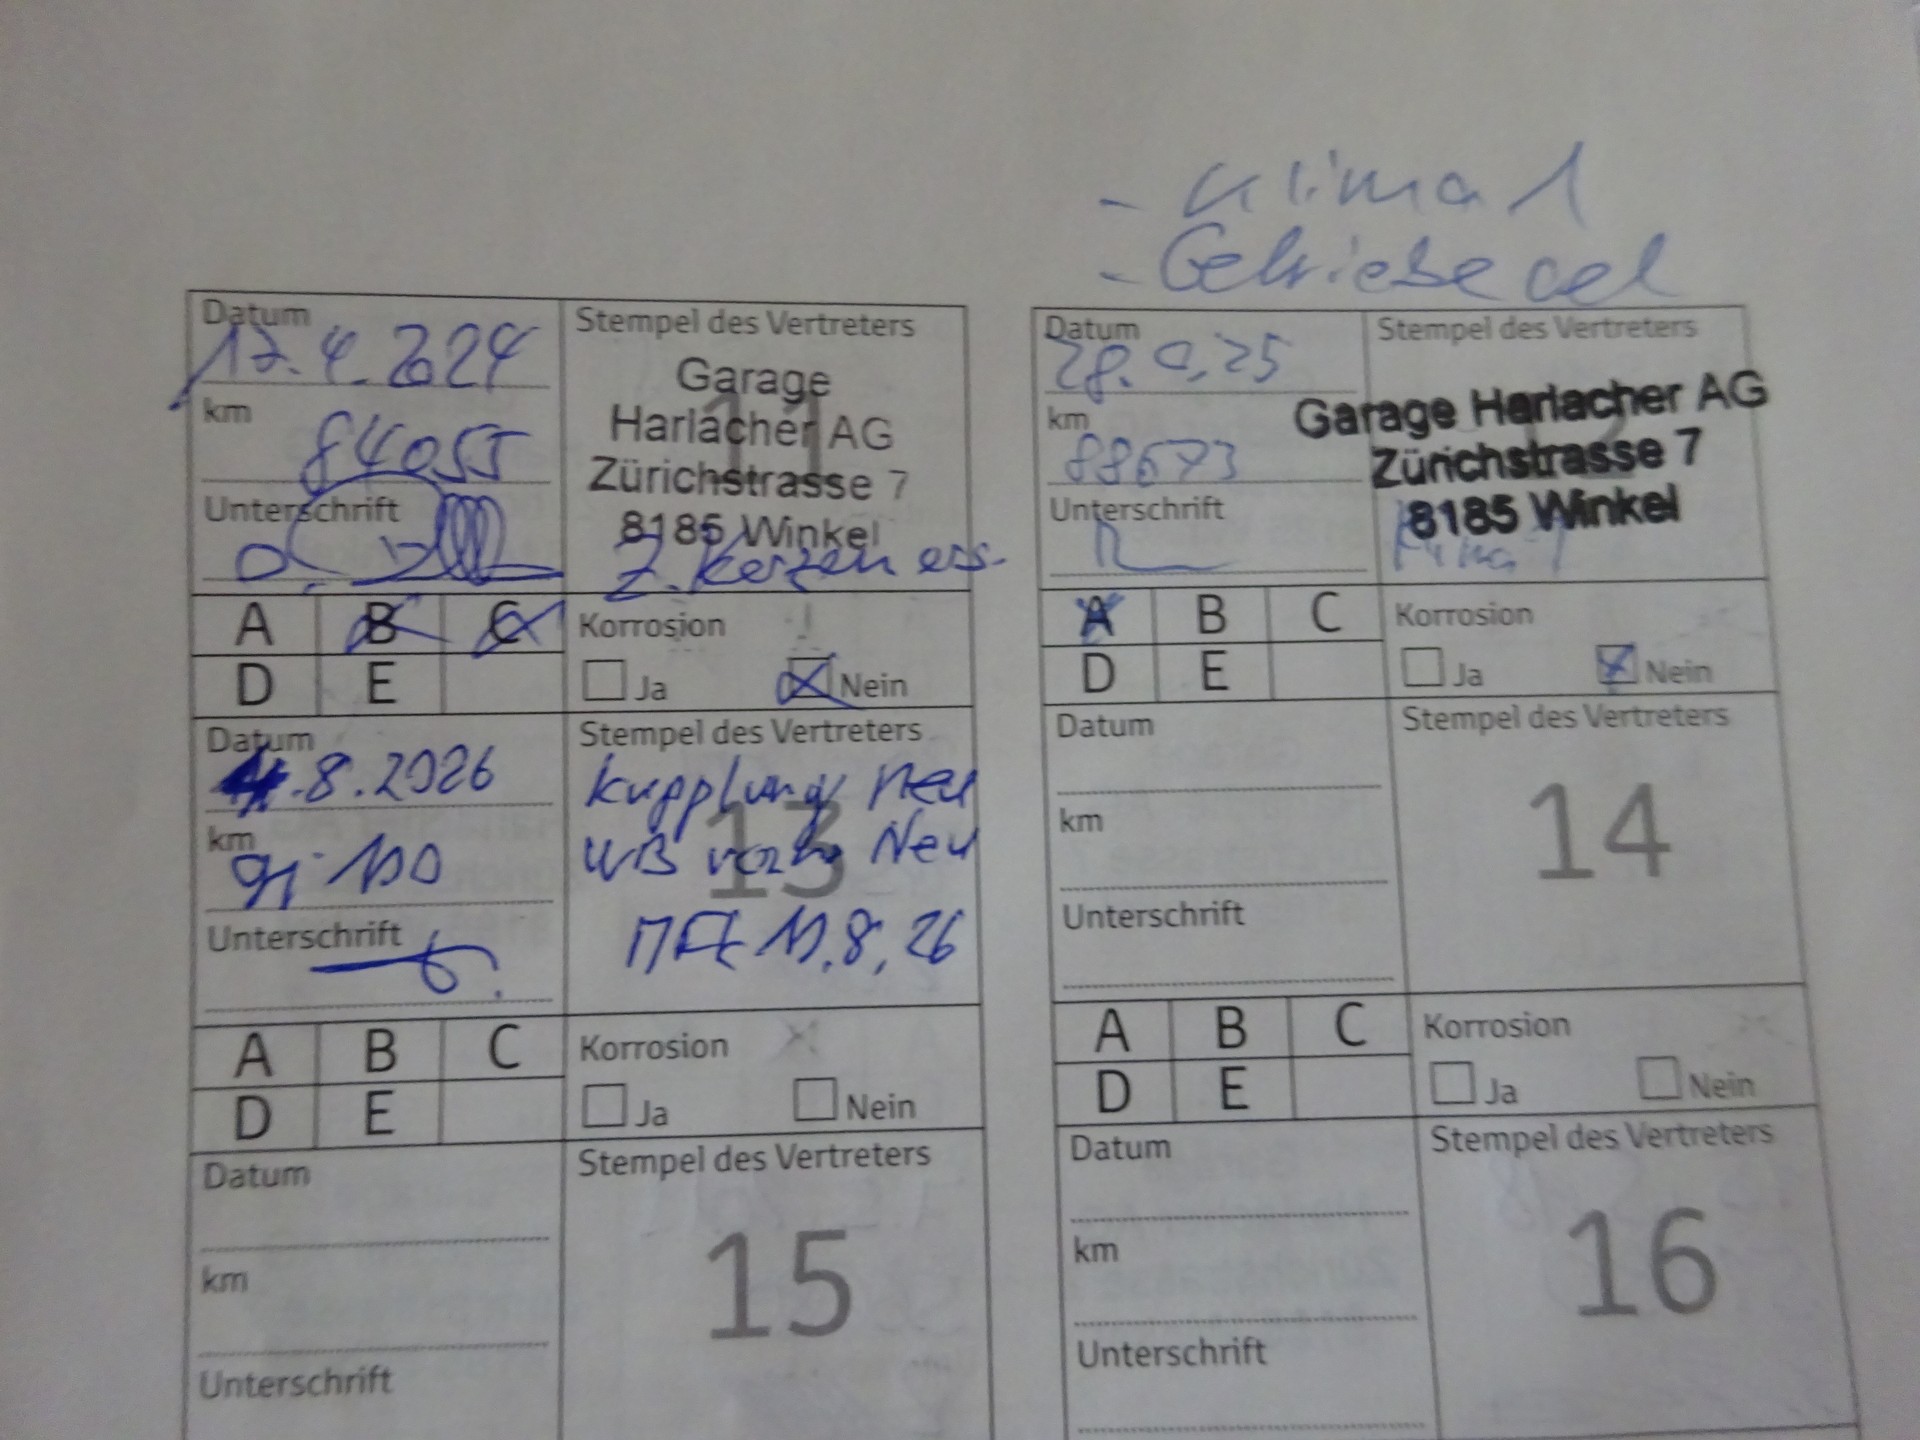 - Klima 1
- Getriebe oel
Datum
17.4.2024
km
84055
Unterschrift
Stempel des Vertreters
11
Garage
Harlacher AG
Zürichstrasse 7
8185 Winkel
Z. Kerzen ers.
A B C
D E
Korrosion
Ja Nein
Datum
25
km
88673
Unterschrift
Stempel des Vertreters
Garage Harlacher AG
Zürichstrasse 7
8185 Winkel
Klima 1
A B C
D E
Korrosion
Ja Nein
Datum
.8.2026
km
Unterschrift
Stempel des Vertreters
13
Kupplung neu
Neu
8, 26
A B C
D E
Korrosion
Ja Nein
Datum
km
Unterschrift
Stempel des Vertreters
14
A B C
D E
Korrosion
Ja Nein
Datum
km
Unterschrift
Stempel des Vertreters
15
Datum
km
Unterschrift
Stempel des Vertreters
16